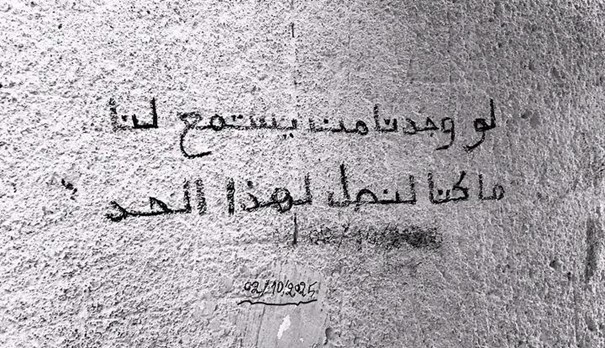 لو وجدنا من يستمع لنا
ما كنا لنصل لهذا الحد
02/10/2025